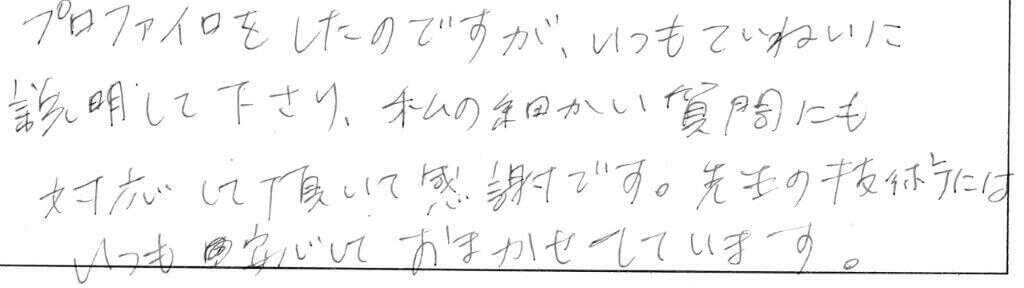 プロファイロをしたのですが、いつもていねいに
説明して下さり、私の細かい質問にも
対応して頂いて感謝です。先生の技術には
いつも安心しておまかせしています。